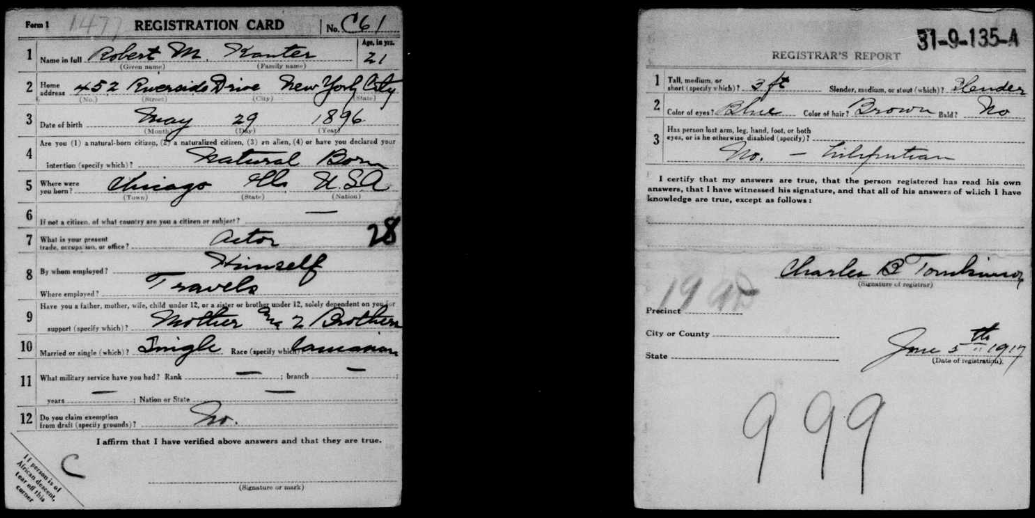 Form 1 1477 REGISTRATION CARD No. C61
1 Name in full Robert M. Kanter Age, in yrs. 21
(Given name) (Family name)
2 Home address 452 Riverside Drive New York City
(No.) (Street) (City) (State)
3 Date of birth May 29 1896
(Month) (Day) (Year)
Are you (1) a natural-born citizen, (2) a naturalized citizen, (3) an alien, (4) or have you declared your
4 intention (specify which)? Natural Born
5 Where were you born? Chicago Ills U.S.A
(Town) (State) (Nation)
6 If not a citizen, of what country are you a citizen or subject? —
7 What is your present trade, occupation, or office? Actor 28
8 By whom employed? Himself
Where employed? Travels
9 Have you a father, mother, wife, child under 12, or a sister or brother under 12, solely dependent on you for
support (specify which)? Mother and 2 Brothers
10 Married or single (which)? Single Race (specify which)? Caucasian
11 What military service have you had? Rank — ; branch —
years — ; Nation or State —
12 Do you claim exemption from draft (specify grounds)? No.
I affirm that I have verified above answers and that they are true.
C
If person is of
African descent,
tear off this
corner
(Signature or mark)
31-9-135-A
REGISTRAR'S REPORT
1 Tall, medium, or short (specify which)? 3 ft Slender, medium, or stout (which)? Slender
2 Color of eyes? Blue Color of hair? Brown Bald? No
3 Has person lost arm, leg, hand, foot, or both
eyes, or is he otherwise disabled (specify)?
No. — Liliputian
I certify that my answers are true, that the person registered has read his own
answers, that I have witnessed his signature, and that all of his answers of which I have
knowledge are true, except as follows:
Charles B Tomkinson
(Signature of registrar)
Precinct
City or County
State
June 5th 1917
(Date of registration)
999